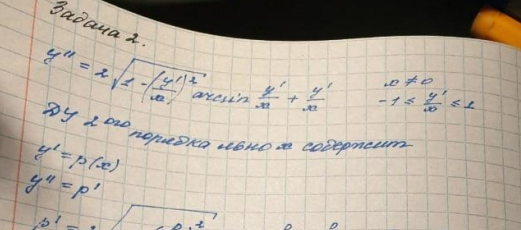 Задача 2.
y'' = 2√(1 - (y'/x)²) arcsin y'/x + y'/x   x ≠ 0
-1 ≤ y'/x ≤ 1
ДУ 2 ого порядка явно x содержит
y' = p(x)
y'' = p'
p' =